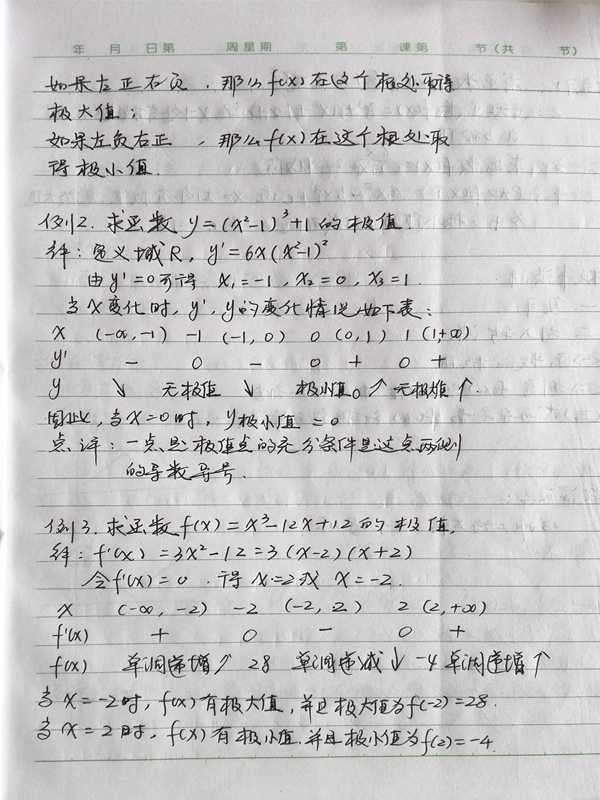 年 月 日第 周星期 第 课第 节(共 节)
如果左正右负，那么f(x)在这个根处取得
极大值；
如果左负右正，那么f(x)在这个根处取
得极小值.
例2. 求函数 y=(x²-1)³+1的极值.
解：定义域R，y'=6x(x²-1)²
由y'=0可得 x₁=-1，x₂=0，x₃=1.
当x变化时，y'，y的变化情况如下表：
x (-∞,-1) -1 (-1,0) 0 (0,1) 1 (1,+∞)
y' - 0 - 0 + 0 +
y ↘ 无极值 ↘ 极小值0 ↗ 无极值 ↑.
因此，当x=0时，y极小值=0
点评：一点是极值点的充分条件是这点两侧
的导数异号.
例3. 求函数f(x)=x³-12x+12的极值.
解：f'(x)=3x²-12=3(x-2)(x+2)
令f'(x)=0．得x=2或x=-2.
x (-∞,-2) -2 (-2,2) 2 (2,+∞)
f'(x) + 0 - 0 +
f(x) 单调递增↗ 28 单调递减↓ -4 单调递增↑
当x=-2时，f(x)有极大值，并且极大值为f(-2)=28.
当x=2时，f(x)有极小值.并且极小值为f(2)=-4.